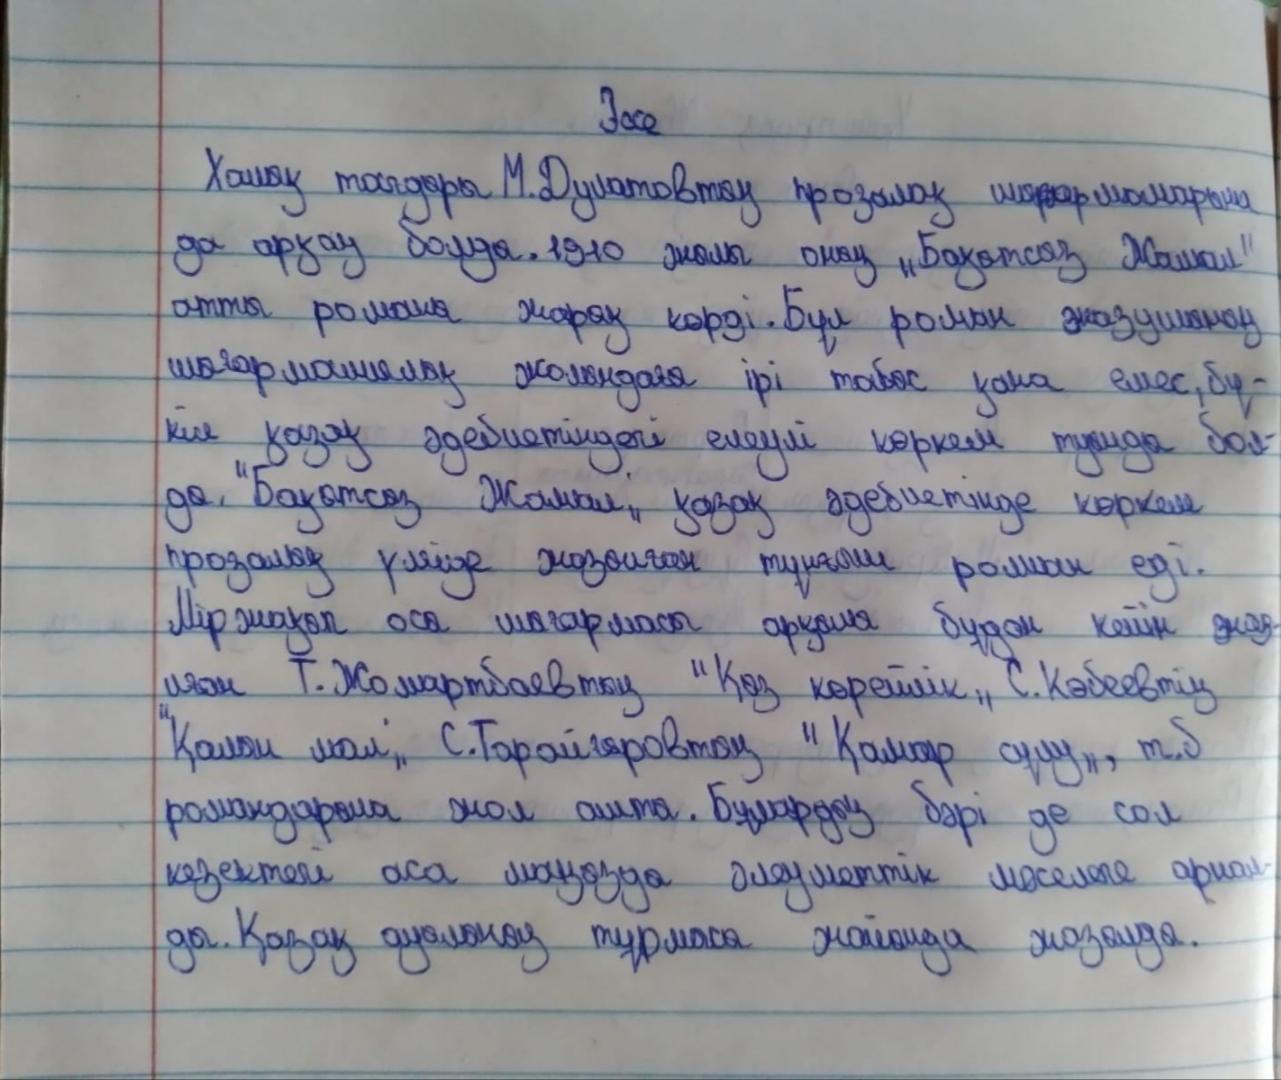 Эссе
Халық тағдыры М.Дулатовтың прозалық шығармаларына
да арқау болды. 1910 жылы оның „Бақытсыз Жамал"
атты романы жарық көрді. Бұл роман жазушының
шығармашылық жолындағы ірі табыс қана емес, бү-
кіл қазақ әдебиетіндегі елеулі көркем туынды бол-
ды. "Бақытсыз Жамал„ қазақ әдебиетінде көркем
прозалық үлгіде жазылған тұңғыш роман еді.
Міржақып осы шығармасы арқылы бұдан кейін жаз-
ылған Т.Жомартбаевтың "Қыз көрейлік„ С.Көбеевтің
"Қалың мал„ С.Торайғыровтың "Қамар сұлу„, т.б
романдарына жол ашты. Бұлардың бәрі де сол
кезектегі аса маңызды әлеуметтік мәселеге арнал-
ды. Қазақ ауылының тұрмысы жайында жазылды.